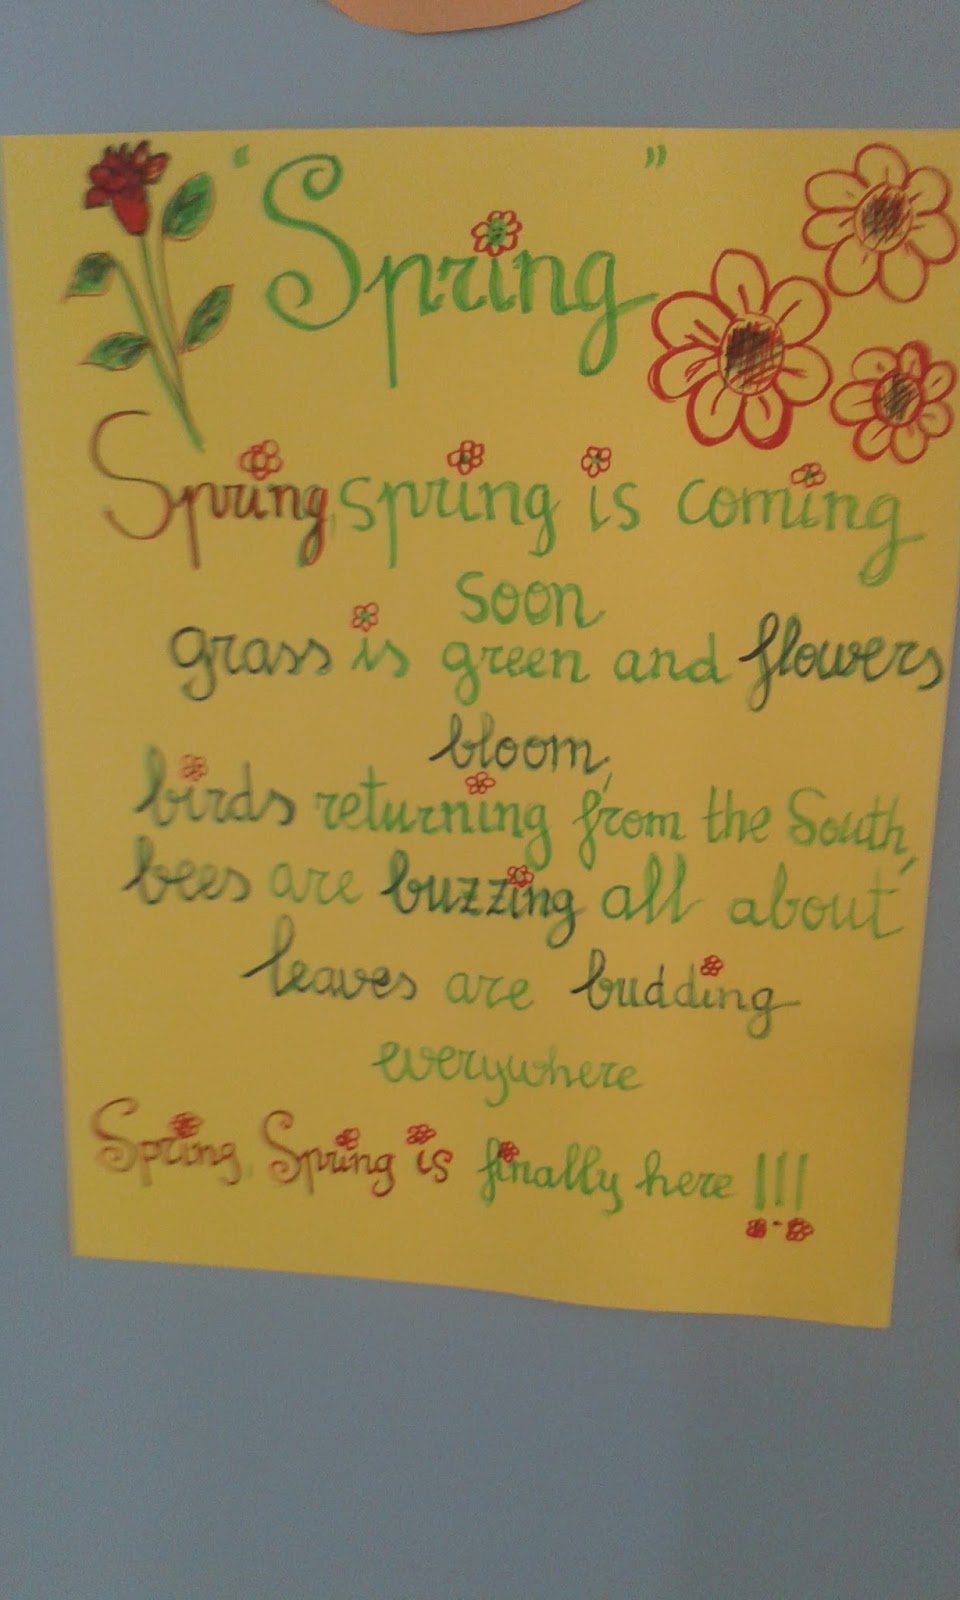 "Spring"
Spring, spring is coming
soon
grass is green and flowers
bloom,
birds returning from the South,
bees are buzzing all about
leaves are budding
everywhere
Spring, Spring is finally here !!!